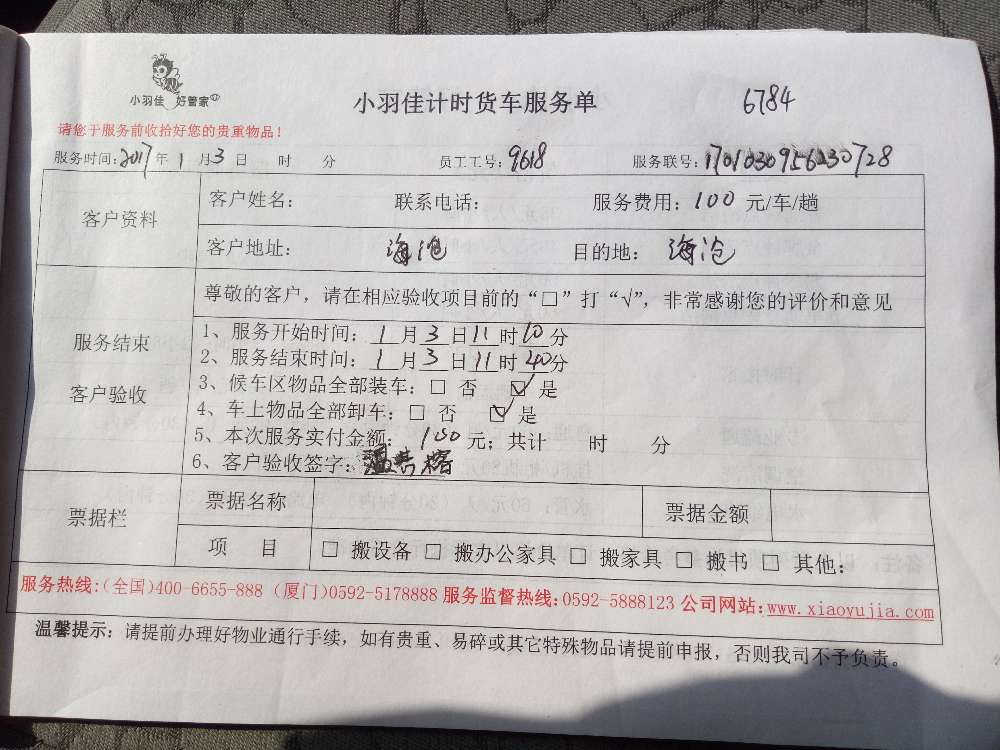 小羽佳 好管家
小羽佳计时货车服务单 6784
请您于服务前收拾好您的贵重物品！
服务时间：2017年1月3日 时 分 员工工号：9618 服务联号：1701030956230728
客户资料 客户姓名： 联系电话： 服务费用：100 元/车/趟
客户地址： 海沧 目的地： 海沧
尊敬的客户，请在相应验收项目前的“□”打“√”，非常感谢您的评价和意见
服务结束
客户验收
1、服务开始时间：1月3日11时10分
2、服务结束时间：1月3日11时40分
3、候车区物品全部装车：□ 否 ☑ 是
4、车上物品全部卸车：□ 否 ☑ 是
5、本次服务实付金额：100元；共计 时 分
6、客户验收签字：
票据栏 票据名称 票据金额
项 目 □ 搬设备 □ 搬办公家具 □ 搬家具 □ 搬书 □ 其他：
服务热线：(全国)400-6655-888 (厦门)0592-5178888 服务监督热线：0592-5888123 公司网站：www.xiaoyujia.com
温馨提示：请提前办理好物业通行手续，如有贵重、易碎或其它特殊物品请提前申报，否则我司不予负责。